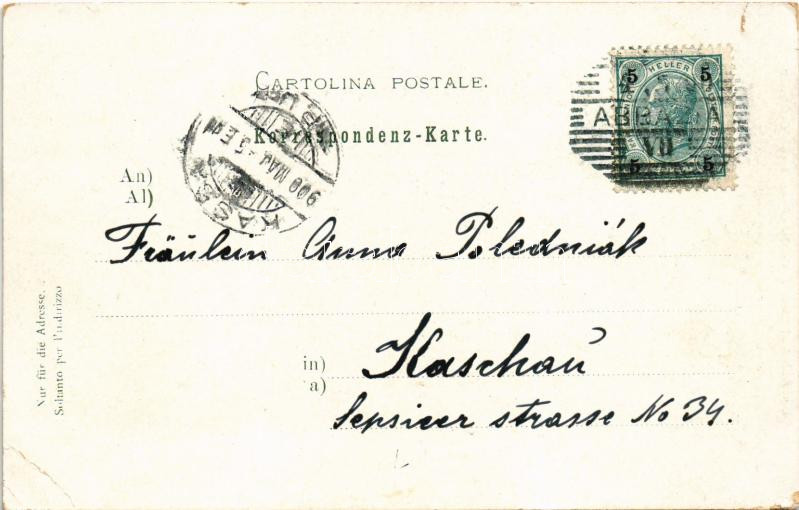 CARTOLINA POSTALE.
Korrespondenz-Karte.
5 HELLER 5
5 5
ABBA
KASSA
900 MAJ
An)
Al)
Fräulein Anna Poledniák
in) Kaschau
a)
Sepsicer strasse No 34.
Nur für die Adresse.
Soltanto per l'indirizzo